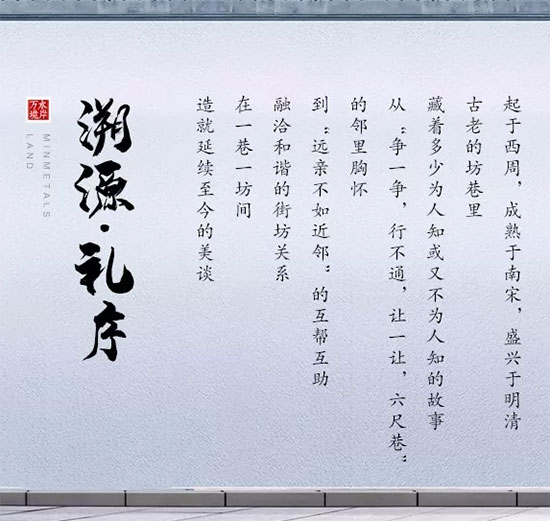 起于西周，成熟于南宋，盛兴于明清
古老的坊巷里
藏着多少为人知或又不为人知的故事
从“争一争，行不通，让一让，六尺巷”
的邻里胸怀
到“远亲不如近邻”的互帮互助
融洽和谐的街坊关系
在一巷一坊间
造就延续至今的美谈
溯源·礼序
水岸
万境
MINMETALS
LAND